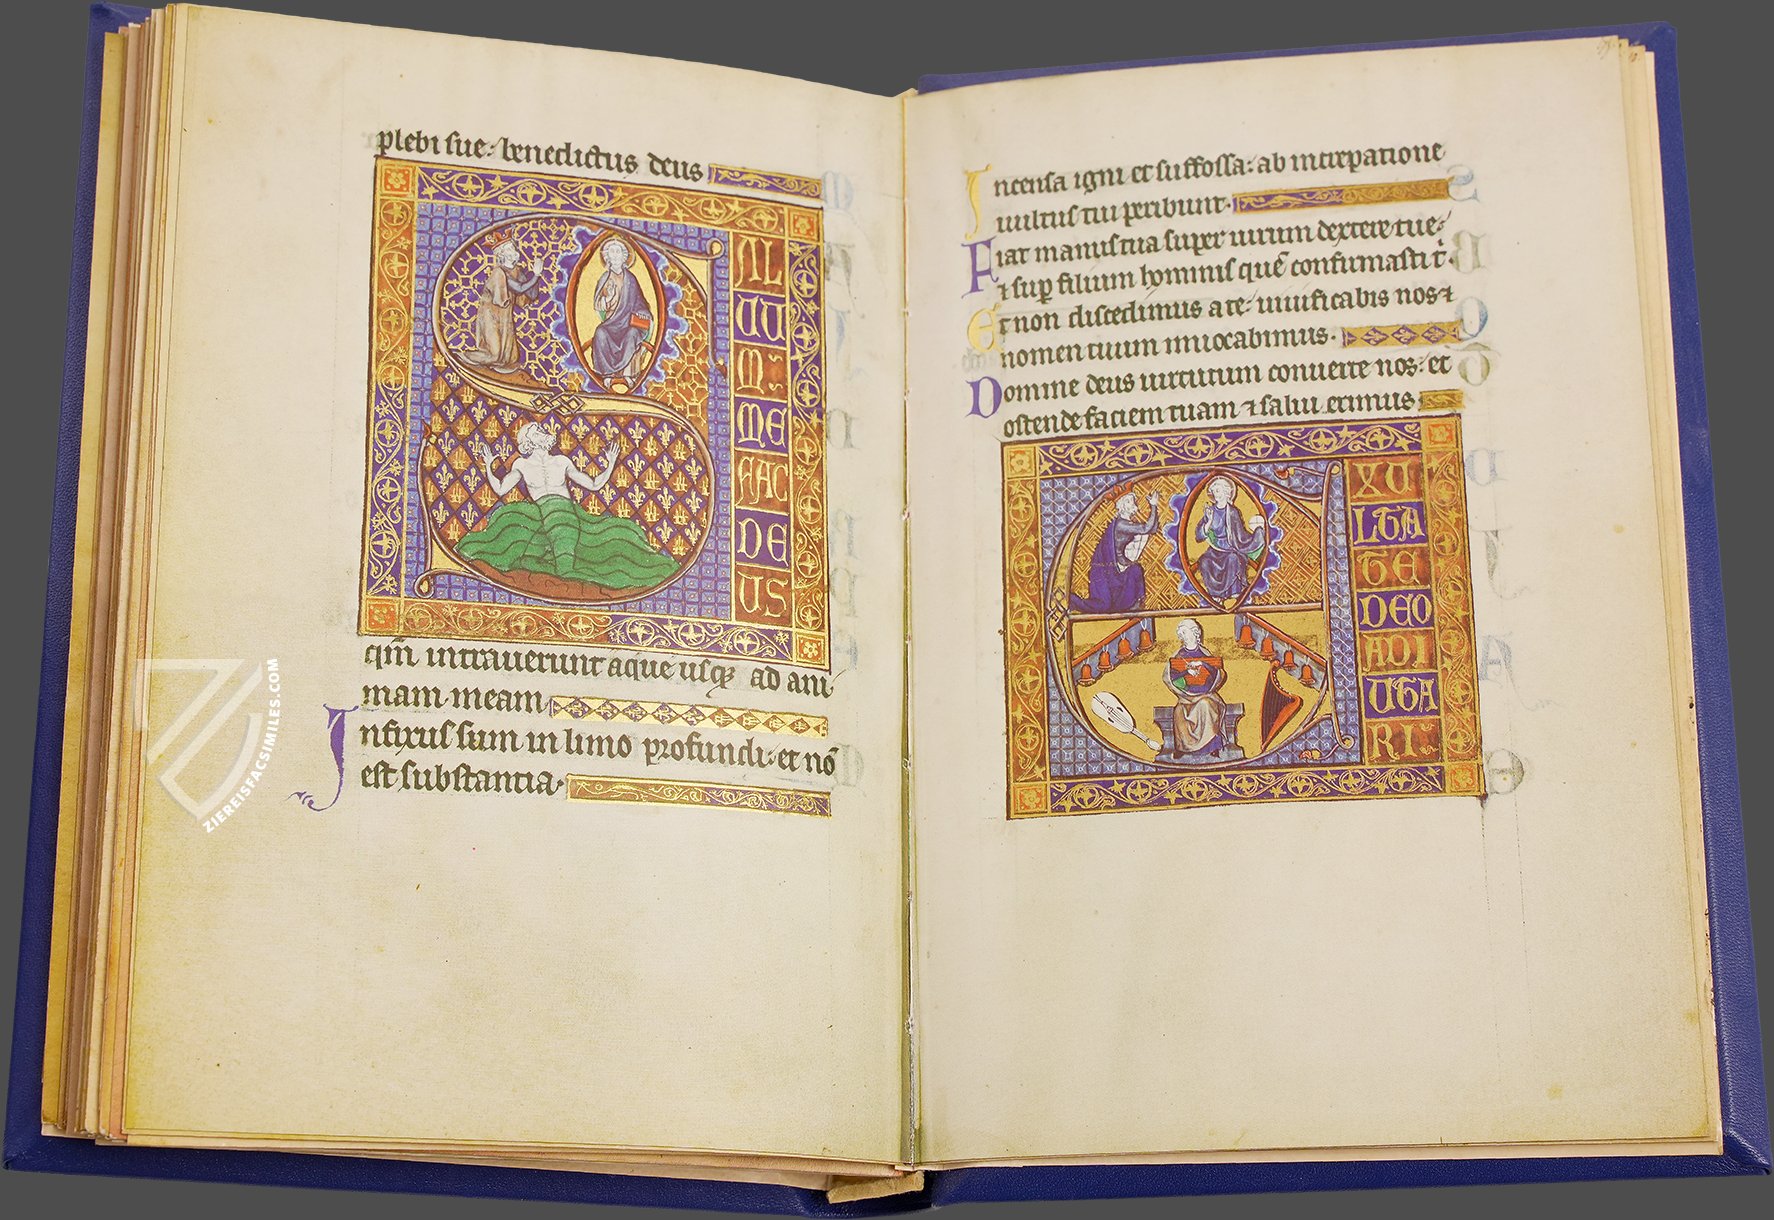 plebi sue: benedictus deus
SALUUM ME FAC DEUS
qm̄ intrauerunt aque usq; ad ani
mam meam
Infixus sum in limo profundi: et nō
est substantia.
ZIEREISFACSIMILES.COM
Incensa igni et suffossa: ab increpatione
uultus tui peribunt.
Fiat manus tua super uirum dextere tue:
⁊ sup̱ filium hominis quē confirmasti t͛.
Et non discedimus a te: uiuificabis nos ⁊
nomen tuum inuocabimus.
Domine deus uirtutum conuerte nos: et
ostende faciem tuam ⁊ salui erimus
EXU
LTA
TE
DEO
ADI
UTA
RI